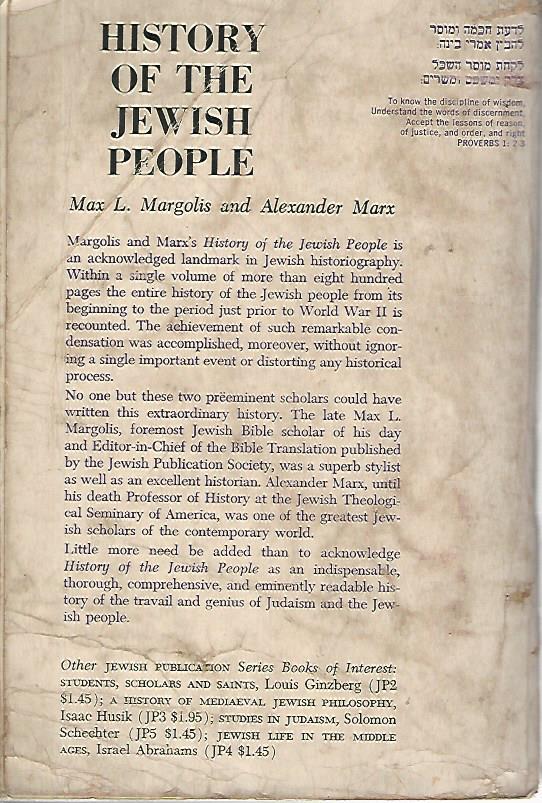 HISTORY
OF THE
JEWISH
PEOPLE
לדעת חכמה ומוסר
להבין אמרי בינה:
לקחת מוסר השכל
צדק ומשפט ומשרים:
To know the discipline of wisdom,
Understand the words of discernment,
Accept the lessons of reason,
of justice, and order, and right
PROVERBS 1: 2-3
Max L. Margolis and Alexander Marx
Margolis and Marx's History of the Jewish People is
an acknowledged landmark in Jewish historiography.
Within a single volume of more than eight hundred
pages the entire history of the Jewish people from its
beginning to the period just prior to World War II is
recounted. The achievement of such remarkable con-
densation was accomplished, moreover, without ignor-
ing a single important event or distorting any historical
process.
No one but these two preëminent scholars could have
written this extraordinary history. The late Max L.
Margolis, foremost Jewish Bible scholar of his day
and Editor-in-Chief of the Bible Translation published
by the Jewish Publication Society, was a superb stylist
as well as an excellent historian. Alexander Marx, until
his death Professor of History at the Jewish Theologi-
cal Seminary of America, was one of the greatest Jew-
ish scholars of the contemporary world.
Little more need be added than to acknowledge
History of the Jewish People as an indispensable,
thorough, comprehensive, and eminently readable his-
tory of the travail and genius of Judaism and the Jew-
ish people.
Other JEWISH PUBLICATION Series Books of Interest:
STUDENTS, SCHOLARS AND SAINTS, Louis Ginzberg (JP2
$1.45); A HISTORY OF MEDIAEVAL JEWISH PHILOSOPHY,
Isaac Husik (JP3 $1.95); STUDIES IN JUDAISM, Solomon
Schechter (JP5 $1.45); JEWISH LIFE IN THE MIDDLE
AGES, Israel Abrahams (JP4 $1.45)